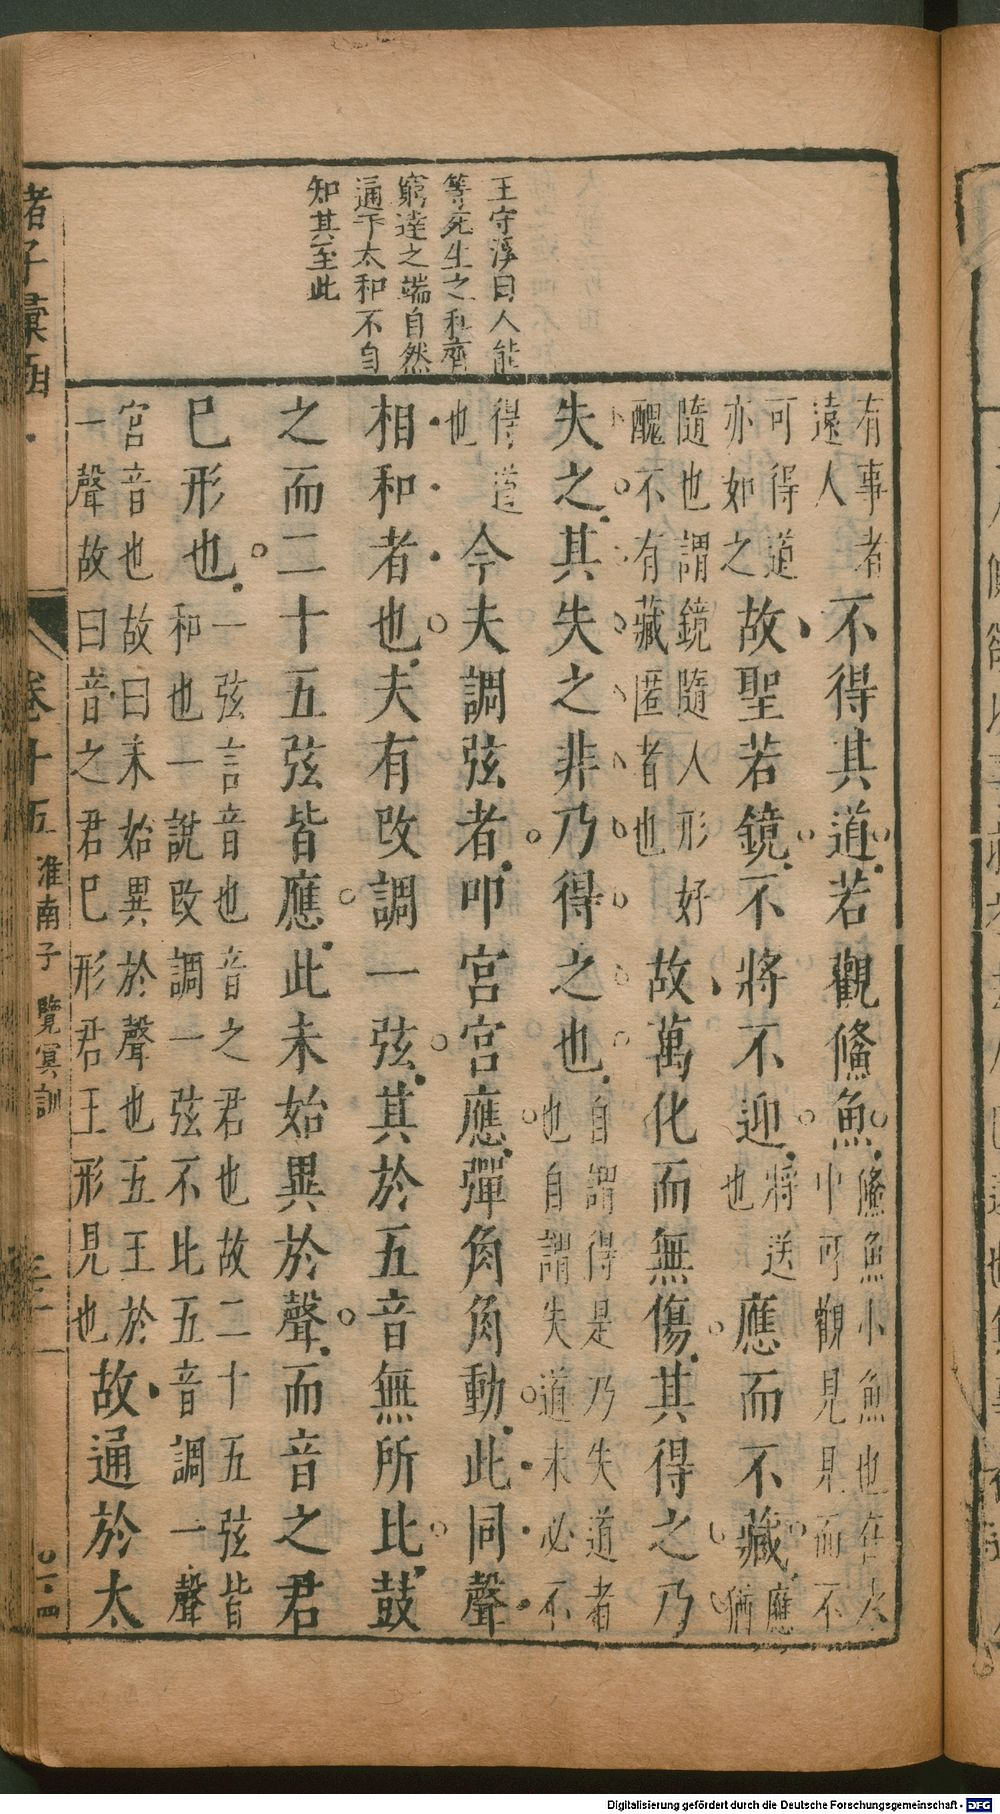 王守溪曰人能
等死生之齊
窮達之端自然
通下太和不自
知其至此
有事者
遠人
不得其道若觀鯈魚
鯈魚小魚也在水
中可觀見見而不
可得道
亦如之
故聖若鏡不將不迎
將送
也
應而不藏
應
猶
隨也謂鏡隨人形好
醜不有藏匿者也
故萬化而無傷其得之乃
失之其失之非乃得之也
自謂得是乃失道者
也自謂失道未必不
得道
也
今夫調弦者叩宮宮應彈角角動此同聲
相和者也夫有改調一弦其於五音無所比鼓
之而二十五弦皆應此未始異於聲而音之君
已形也
一弦言音也音之君也故二十五弦皆
和也一說改調一弦不比五音調一聲
宮音也故曰未始異於聲也五王於
一聲故曰音之君已形君王形見也
故通於太
諸子彙函
卷十五
淮南子 覽冥訓
Digitalisierung gefördert durch die Deutsche Forschungsgemeinschaft - DFG